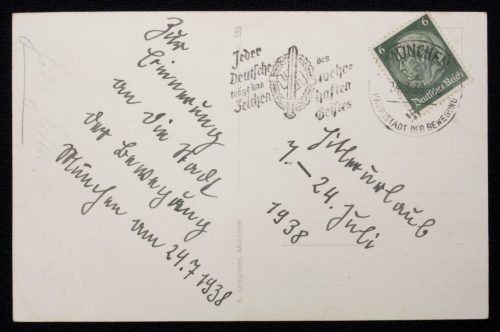 Zur
Erinnerung
an die Stadt
der Bewegung
München am 24.7.1938
330
A. Lengauer, München
Jeder
Deutsche
trägt das
Zeichen
des
wehr-
haften
Geistes
6
6
Deutsches Reich
MÜNCHEN
HAUPTSTADT DER BEWEGUNG
Hitlerurlaub
7.–24. Juli
1938